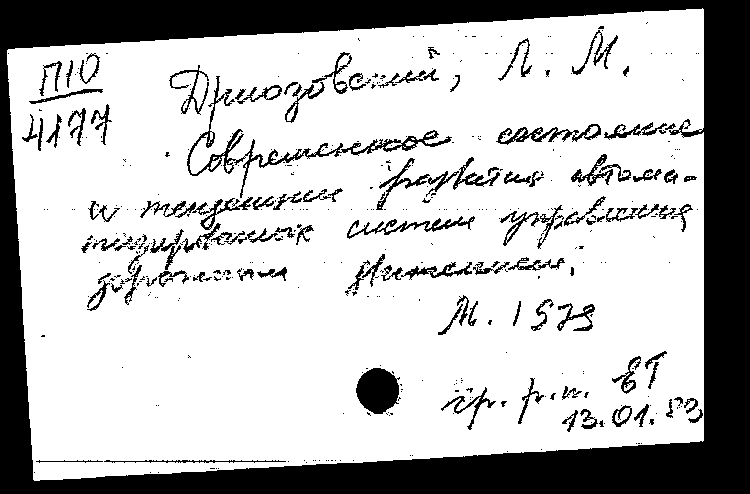 П10
4177
Дрюозовский, Л. М.
Современное состояние
и тенденции развития автома-
тизированных систем управления
дорожным движением.
М. 1979
13.01.83